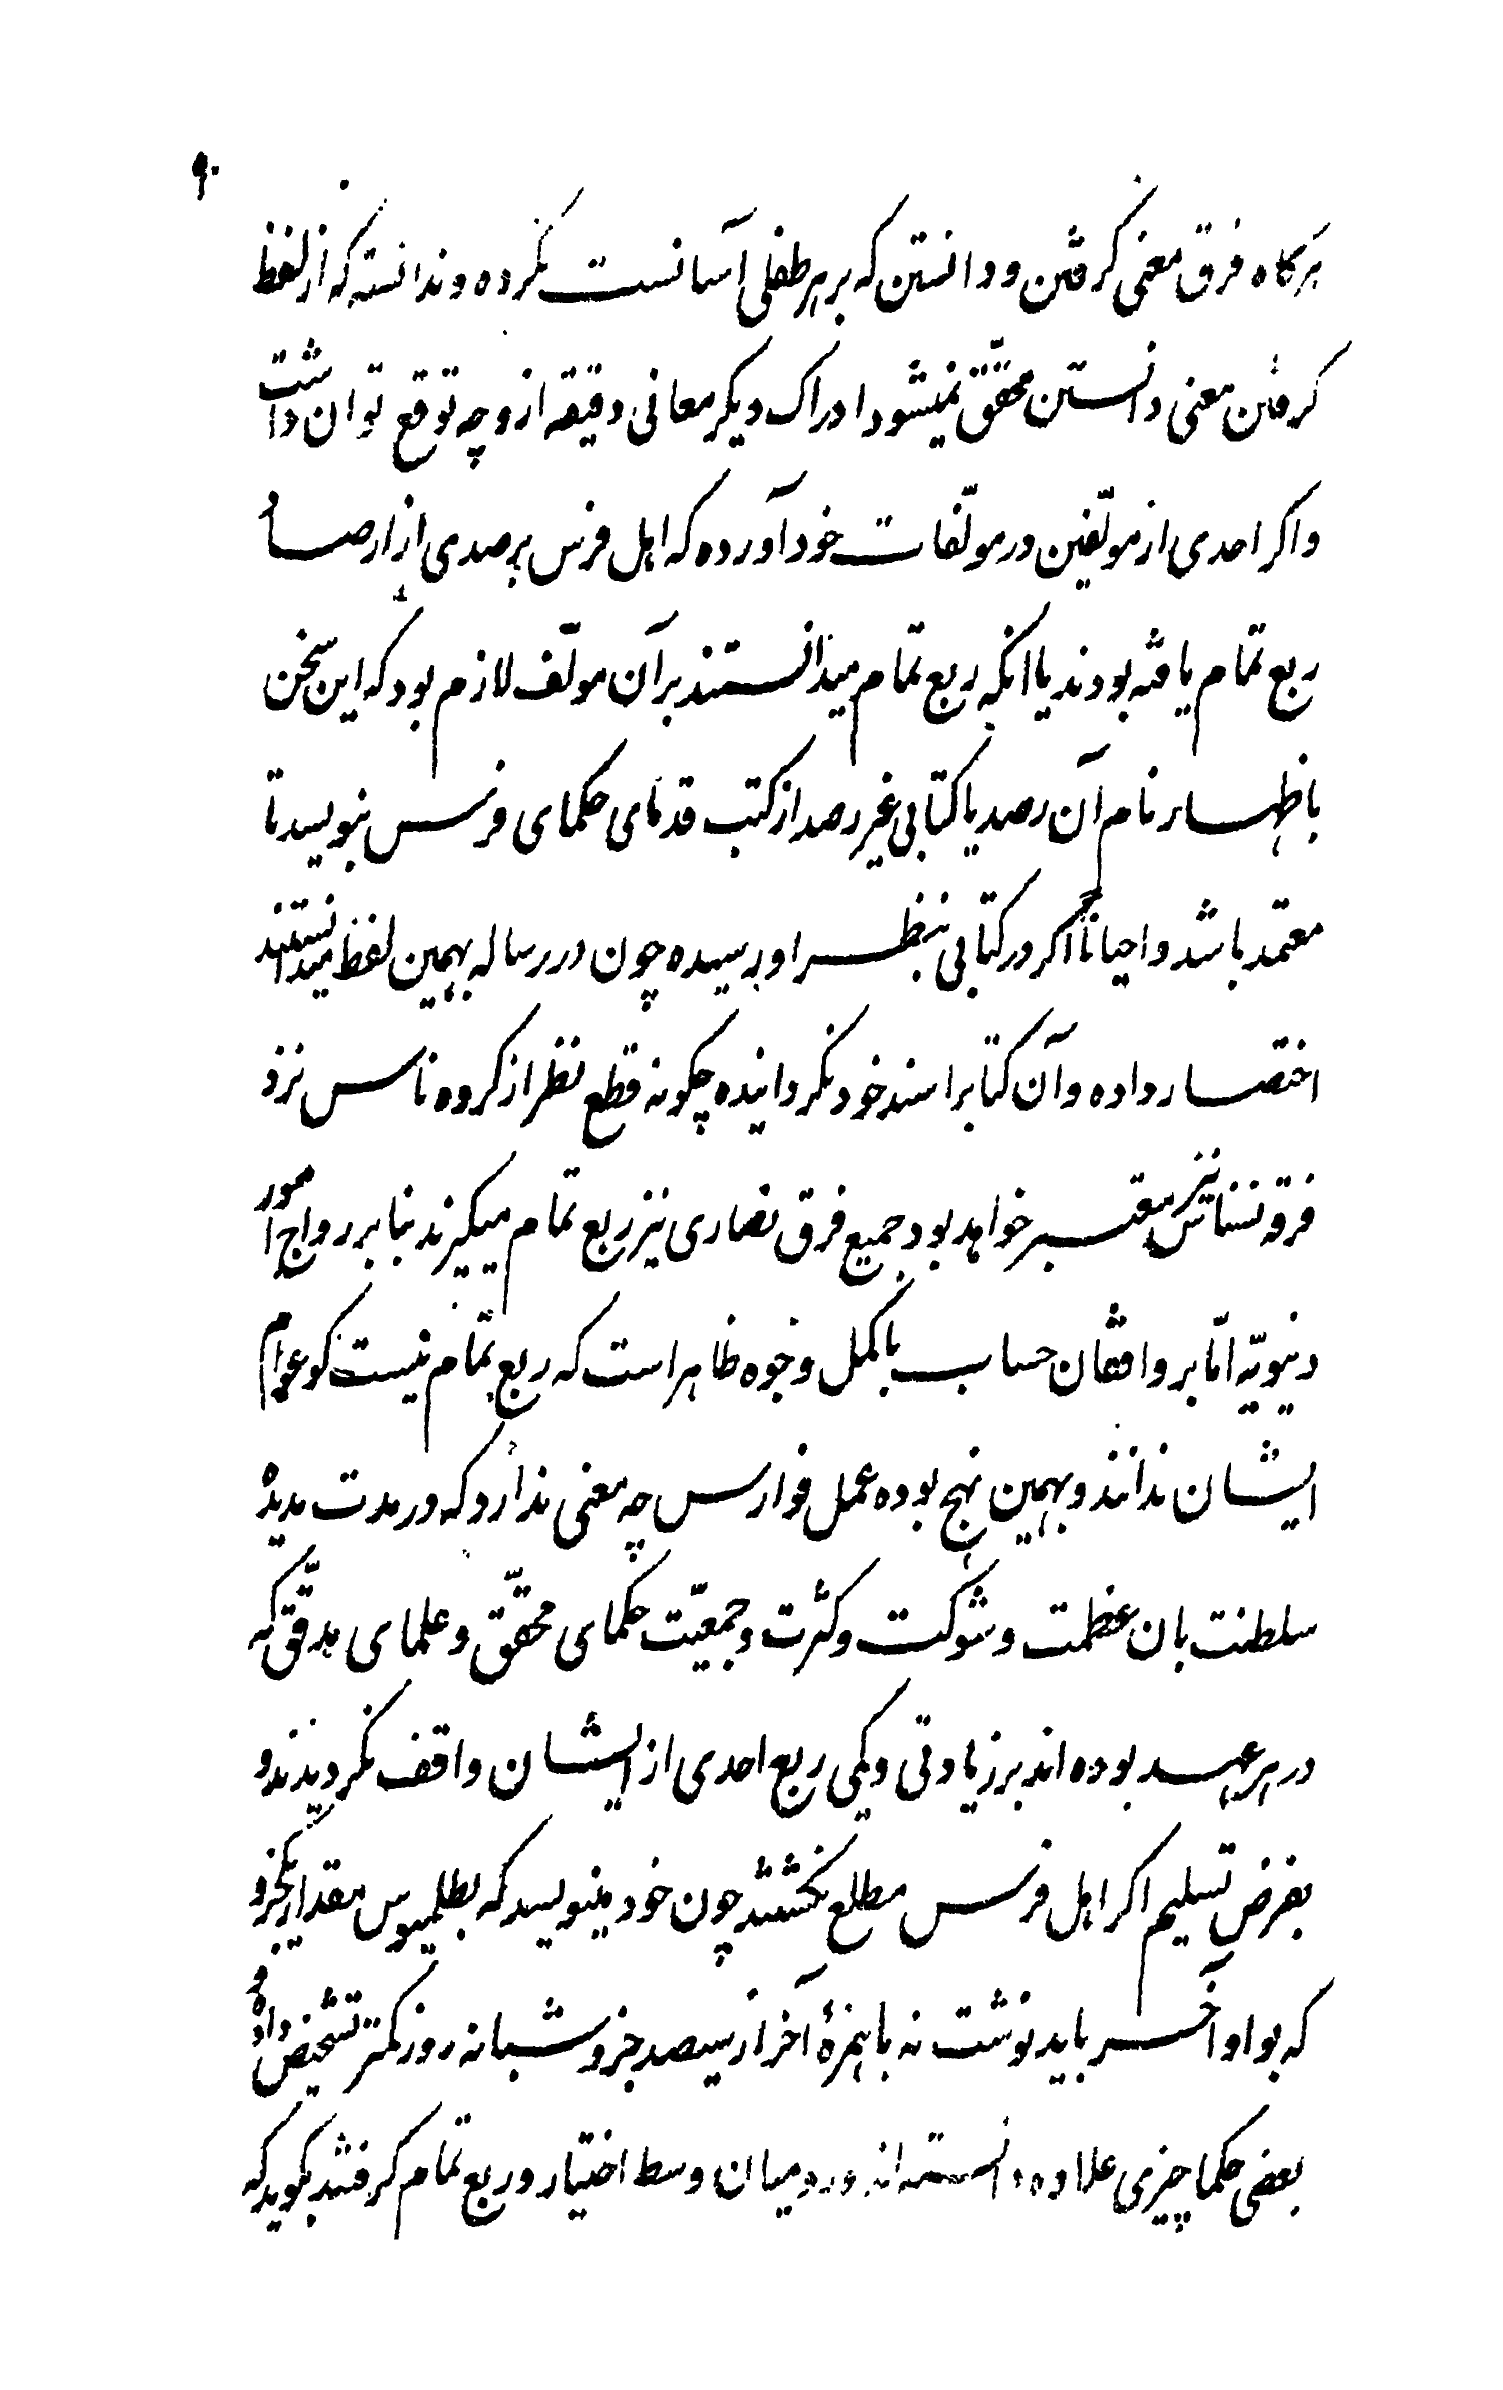 ۹۰
هرگاه فرق معنی گرفتن و دانستن که بر هر طفلی آسانست نکرده و ندانسته که از لفظ
گرفتن معنی دانستن محقّق نمیشود ادراک دیگر معانی دقیقه ازو چه توقع توان داشت
و اگر احدی از مولّفین در مولّفات خود آورده که اهل فرس برصدی از ارصاد
ربع تمام یافته بودند یا انکه ربع تمام میدانستند بر آن مولّف لازم بود که این سخن
باظهار نام آن رصد یا کتابی غیر رصد از کتب قدمای حکمای فرس بنویسد تا
معتمد باشد و احیاناً اگر در کتابی بنظر او رسیده چون در رساله بهمین لفظ میدانستند
اختصار داده و آن کتابرا سند خود نگردانیده چگونه قطع نظر از گروه ناس نزد
فرقه نسناس نیز معتبر خواهد بود جمیع فرق نصاری نیز ربع تمام میگیرند بنابر رواج امور
دنیویّه امّا بر واقفان حساب باکمل وجوه ظاهر است که ربع تمام نیست گو عوام
ایشان ندانند و بهمین نهج بوده عمل فوارس چه معنی ندارد که در مدت مدیدهٔ
سلطنت بان عظمت و شوکت و کثرت و جمعیّت حکمای محقّق و علمای مدقّق که
در هر عهد بوده اند بر زیادتی و کمی ربع احدی از ایشان واقف نگردیدند و
بفرض تسلیم اگر اهل فرس مطلع نگشتند چون خود مینویسد که بطلمیوس مقدار یکجزو
که بواو آخر باید نوشت نه با همزهٔ آخر از سیصد جزو شبانه روز کمتر تشخیص داده و
بعضی حکما چیزی علاوه دانسته اند و در میان وسط اختیار و ربع تمام گرفتند بگوید که